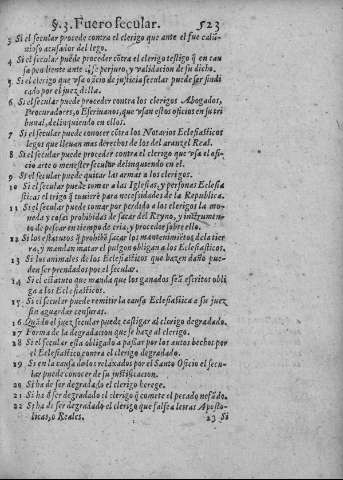 §.3. Fuero secular. 523
3 Si el secular procede contra el clerigo que ante el fue calũ-
nioso acusador del lego.
4 Si el secular puede proceder cõtra el clerigo testigo q̃ en cau
sa pendiente ante se perjuro, y validacion de su dicho.
5 Si el clerigo que vsa oficio de justicia secular puede ser sindi
cado por el juez della.
6 Si el secular puede proceder contra los clerigos Abogados,
Procuradores, o Escriuanos, que vsan estos oficios en su tri
bunal, delinquiendo en ellos.
7 Si el secular puede conocer cõtra los Notarios Eclesiasticos
legos que lleuan mas derechos de los del aranzel Real.
8 Si el secular puede proceder contra el clerigo que vsa el ofi-
cio arte o menester secular delinquiendo en el.
9 Si el secular puede quitar las armas a los clerigos.
10 Si el secular puede tomar a las Iglesias, y personas Eclesia
sticas el trigo q̃ tuuierẽ para necesidades de la Republica.
11 Si el secular puede tomar por perdido a los clerigos la mo-
neda y cosas prohibidas de sacar del Reyno, y instrumento
de pescar en tiempo de cria, y proceder sobre ello.
12 Si los estatutos q̃ prohibẽ sacar los mantenimiẽtos de la tier
ra, y mandan matar el pulgon obligan a los Eclesiasticos.
13 Si los animales de los Eclesiasticos que hazen daño pue-
den ser prendados por el secular.
14 Si el estatuto que manda que los ganados seã escritos obli
ga a los Eclesiasticos.
15 Si el secular puede remitir la causa Eclesiastica a su juez
sin aguardar censuras.
16 Quãdo el juez secular puede castigar al clerigo degradado.
17 Forma de la degradacion que se haze al clerigo.
18 Si el secular esta obligado a passar por los autos hechos por
el Eclesiastico contra el clerigo degradado.
19 Si en la causa de los relaxados por el Santo Oficio el secu-
lar puede conocer de su justificacion.
20 Si ha de ser degradado el clerigo herege.
21 Si ha de ser degradado el clerigo q̃ comete el pecado nefãdo.
22 Si ha de ser degradado el clerigo que falsea letras Aposto-
licas, o Reales. 23 Si